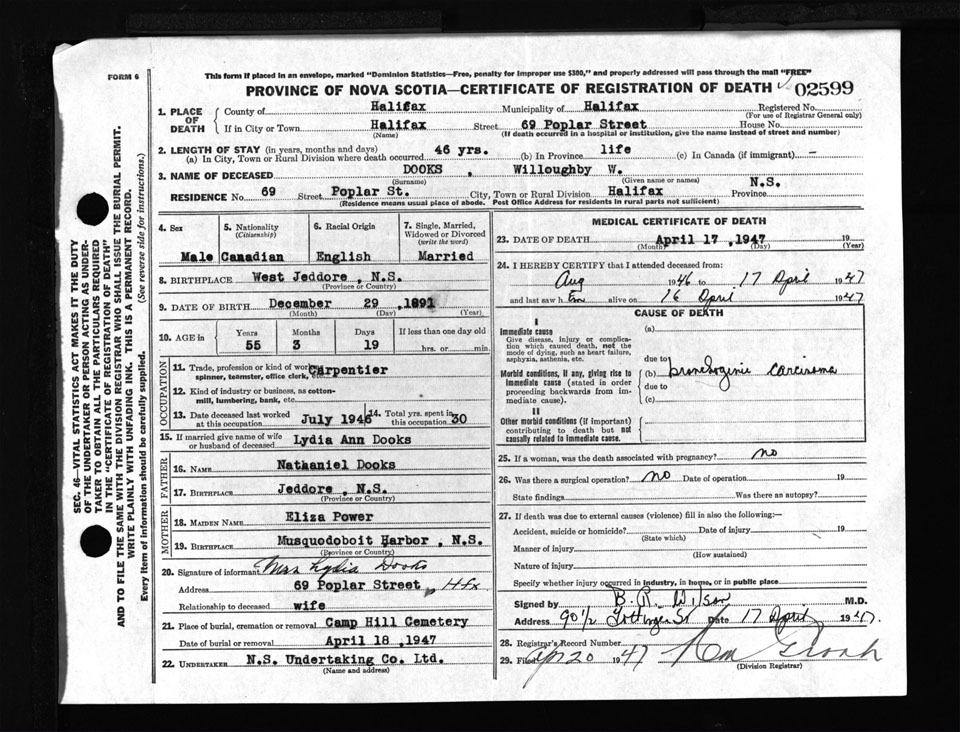 FORM 6
This form if placed in an envelope, marked "Dominion Statistics—Free, penalty for improper use $300," and properly addressed will pass through the mail "FREE"
PROVINCE OF NOVA SCOTIA—CERTIFICATE OF REGISTRATION OF DEATH 02599
1. PLACE OF DEATH
County of Halifax Municipality of Halifax Registered No.
(For use of Registrar General only)
If in City or Town Halifax Street 69 Poplar Street House No.
(Name) (If death occurred in a hospital or institution, give the name instead of street and number)
2. LENGTH OF STAY (in years, months and days)
(a) In City, Town or Rural Division where death occurred 46 yrs. (b) In Province life (c) In Canada (if immigrant) —
3. NAME OF DECEASED DOOKS , Willoughby W.
(Surname) (Given name or names)
RESIDENCE No. 69 Street Poplar St. City, Town or Rural Division Halifax Province N.S.
(Residence means usual place of abode. Post Office Address for residents in rural parts not sufficient)
SEC. 46—VITAL STATISTICS ACT MAKES IT THE DUTY
OF THE UNDERTAKER OR PERSON ACTING AS UNDER-
TAKER TO OBTAIN ALL THE PARTICULARS REQUIRED
IN THE "CERTIFICATE OF REGISTRATION OF DEATH"
AND TO FILE THE SAME WITH THE DIVISION REGISTRAR WHO SHALL ISSUE THE BURIAL PERMIT.
WRITE PLAINLY WITH UNFADING INK. THIS IS A PERMANENT RECORD.
Every item of information should be carefully supplied. (See reverse side for instructions.)
4. Sex
Male
5. Nationality
(Citizenship)
Canadian
6. Racial Origin
English
7. Single, Married,
Widowed or Divorced
(write the word)
Married
8. BIRTHPLACE West Jeddore , N.S.
(Province or Country)
9. DATE OF BIRTH December 29 ,1891
(Month) (Day) (Year)
10. AGE in
Years Months Days If less than one day old
55 3 19 hrs. or min.
OCCUPATION
11. Trade, profession or kind of work Carpentier
spinner, teamster, office clerk, etc.
12. Kind of industry or business, as cotton-
mill, lumbering, bank, etc.
13. Date deceased last worked
at this occupation July 1946
14. Total yrs. spent in
this occupation 30
15. If married give name of wife
or husband of deceased Lydia Ann Dooks
FATHER
16. NAME Nathaniel Dooks
17. BIRTHPLACE Jeddore , N.S.
(Province or Country)
MOTHER
18. MAIDEN NAME Eliza Power
19. BIRTHPLACE Musquodoboit Harbor , N.S.
(Province or Country)
20. Signature of informant Mrs Lydia Dooks
Address 69 Poplar Street, Hfx
Relationship to deceased wife
21. Place of burial, cremation or removal Camp Hill Cemetery
Date of burial or removal April 18 ,1947
22. UNDERTAKER N.S. Undertaking Co. Ltd.
(Name and address)
MEDICAL CERTIFICATE OF DEATH
23. DATE OF DEATH April 17 ,1947 19
(Month) (Day) (Year)
24. I HEREBY CERTIFY that I attended deceased from:
Aug 1946 to 17 April 1947
and last saw him alive on 16 April 1947
CAUSE OF DEATH
I
Immediate cause (a)
Give disease, injury or complica-
tion which caused death, not the
mode of dying, such as heart failure,
asphyxia, asthenia, etc.
due to
Morbid conditions, if any, giving rise to
immediate cause (stated in order
proceeding backwards from im-
mediate cause).
(b) bronchogenic carcinoma
due to
(c)
II
Other morbid conditions (if important)
contributing to death but not
causally related to immediate cause.
25. If a woman, was the death associated with pregnancy? no
26. Was there a surgical operation? no Date of operation 19
State findings Was there an autopsy?
27. If death was due to external causes (violence) fill in also the following:—
Accident, suicide or homicide? Date of injury 19
(State which)
Manner of injury
(How sustained)
Nature of injury
Specify whether injury occurred in industry, in home, or in public place
Signed by B. R. Wilson M.D.
Address 90 1/2 Gottingen St Date 17 April 1947.
28. Registrar's Record Number
29. Filed Apr 20 1947
(Division Registrar)